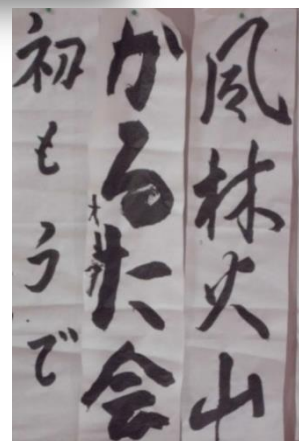 風林火山
かるた会
初もうで